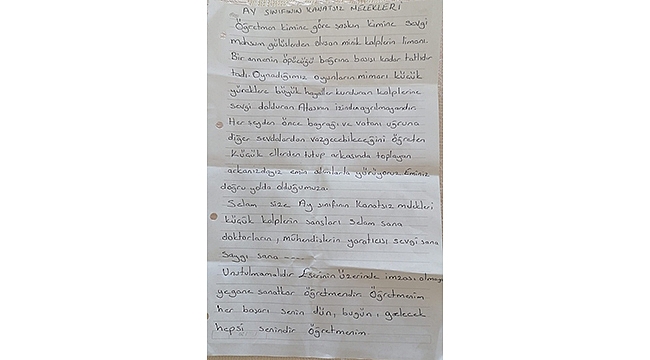 AY SINIFININ KANATSIZ MELEKLERİ
Öğretmen kimine göre saskın kimine sevgi
Mahsum gülüslerden olusan minik kalplerin limanı.
Bir annenin öpücüğü bağrına basısı kadar tatlıdır
tadı. Oynadığımız oyunların mimarı küçük
yüreklere büyük hayaller kurduran kalplerine
sevgi dolduran Atasının izinden ayrılmayandır.
Her şeyden önce bayrağı ve vatanı uğruna
diğer sevdalardan vazgeçebileceğini öğreden
Küçük ellerden tutup arkasında toplayan
arkanızdayız emin adımlarla yürüyoruz. Eminiz
doğru yolda olduğumuza.
Selam size Ay sınıfının Kanatsız melekleri
küçük kalplerin sansları Selam sana
doktorların, mühendislerin yaratıcısı sevgi sana
Saygı sana ----
Unutulmamalıdır Eserinin Üzerinde imzası olmayan
yegane sanatkar öğretmendir. Öğretmenim
her başarı senin dün, bugün, gelecek
hepsi senindir öğretmenim.